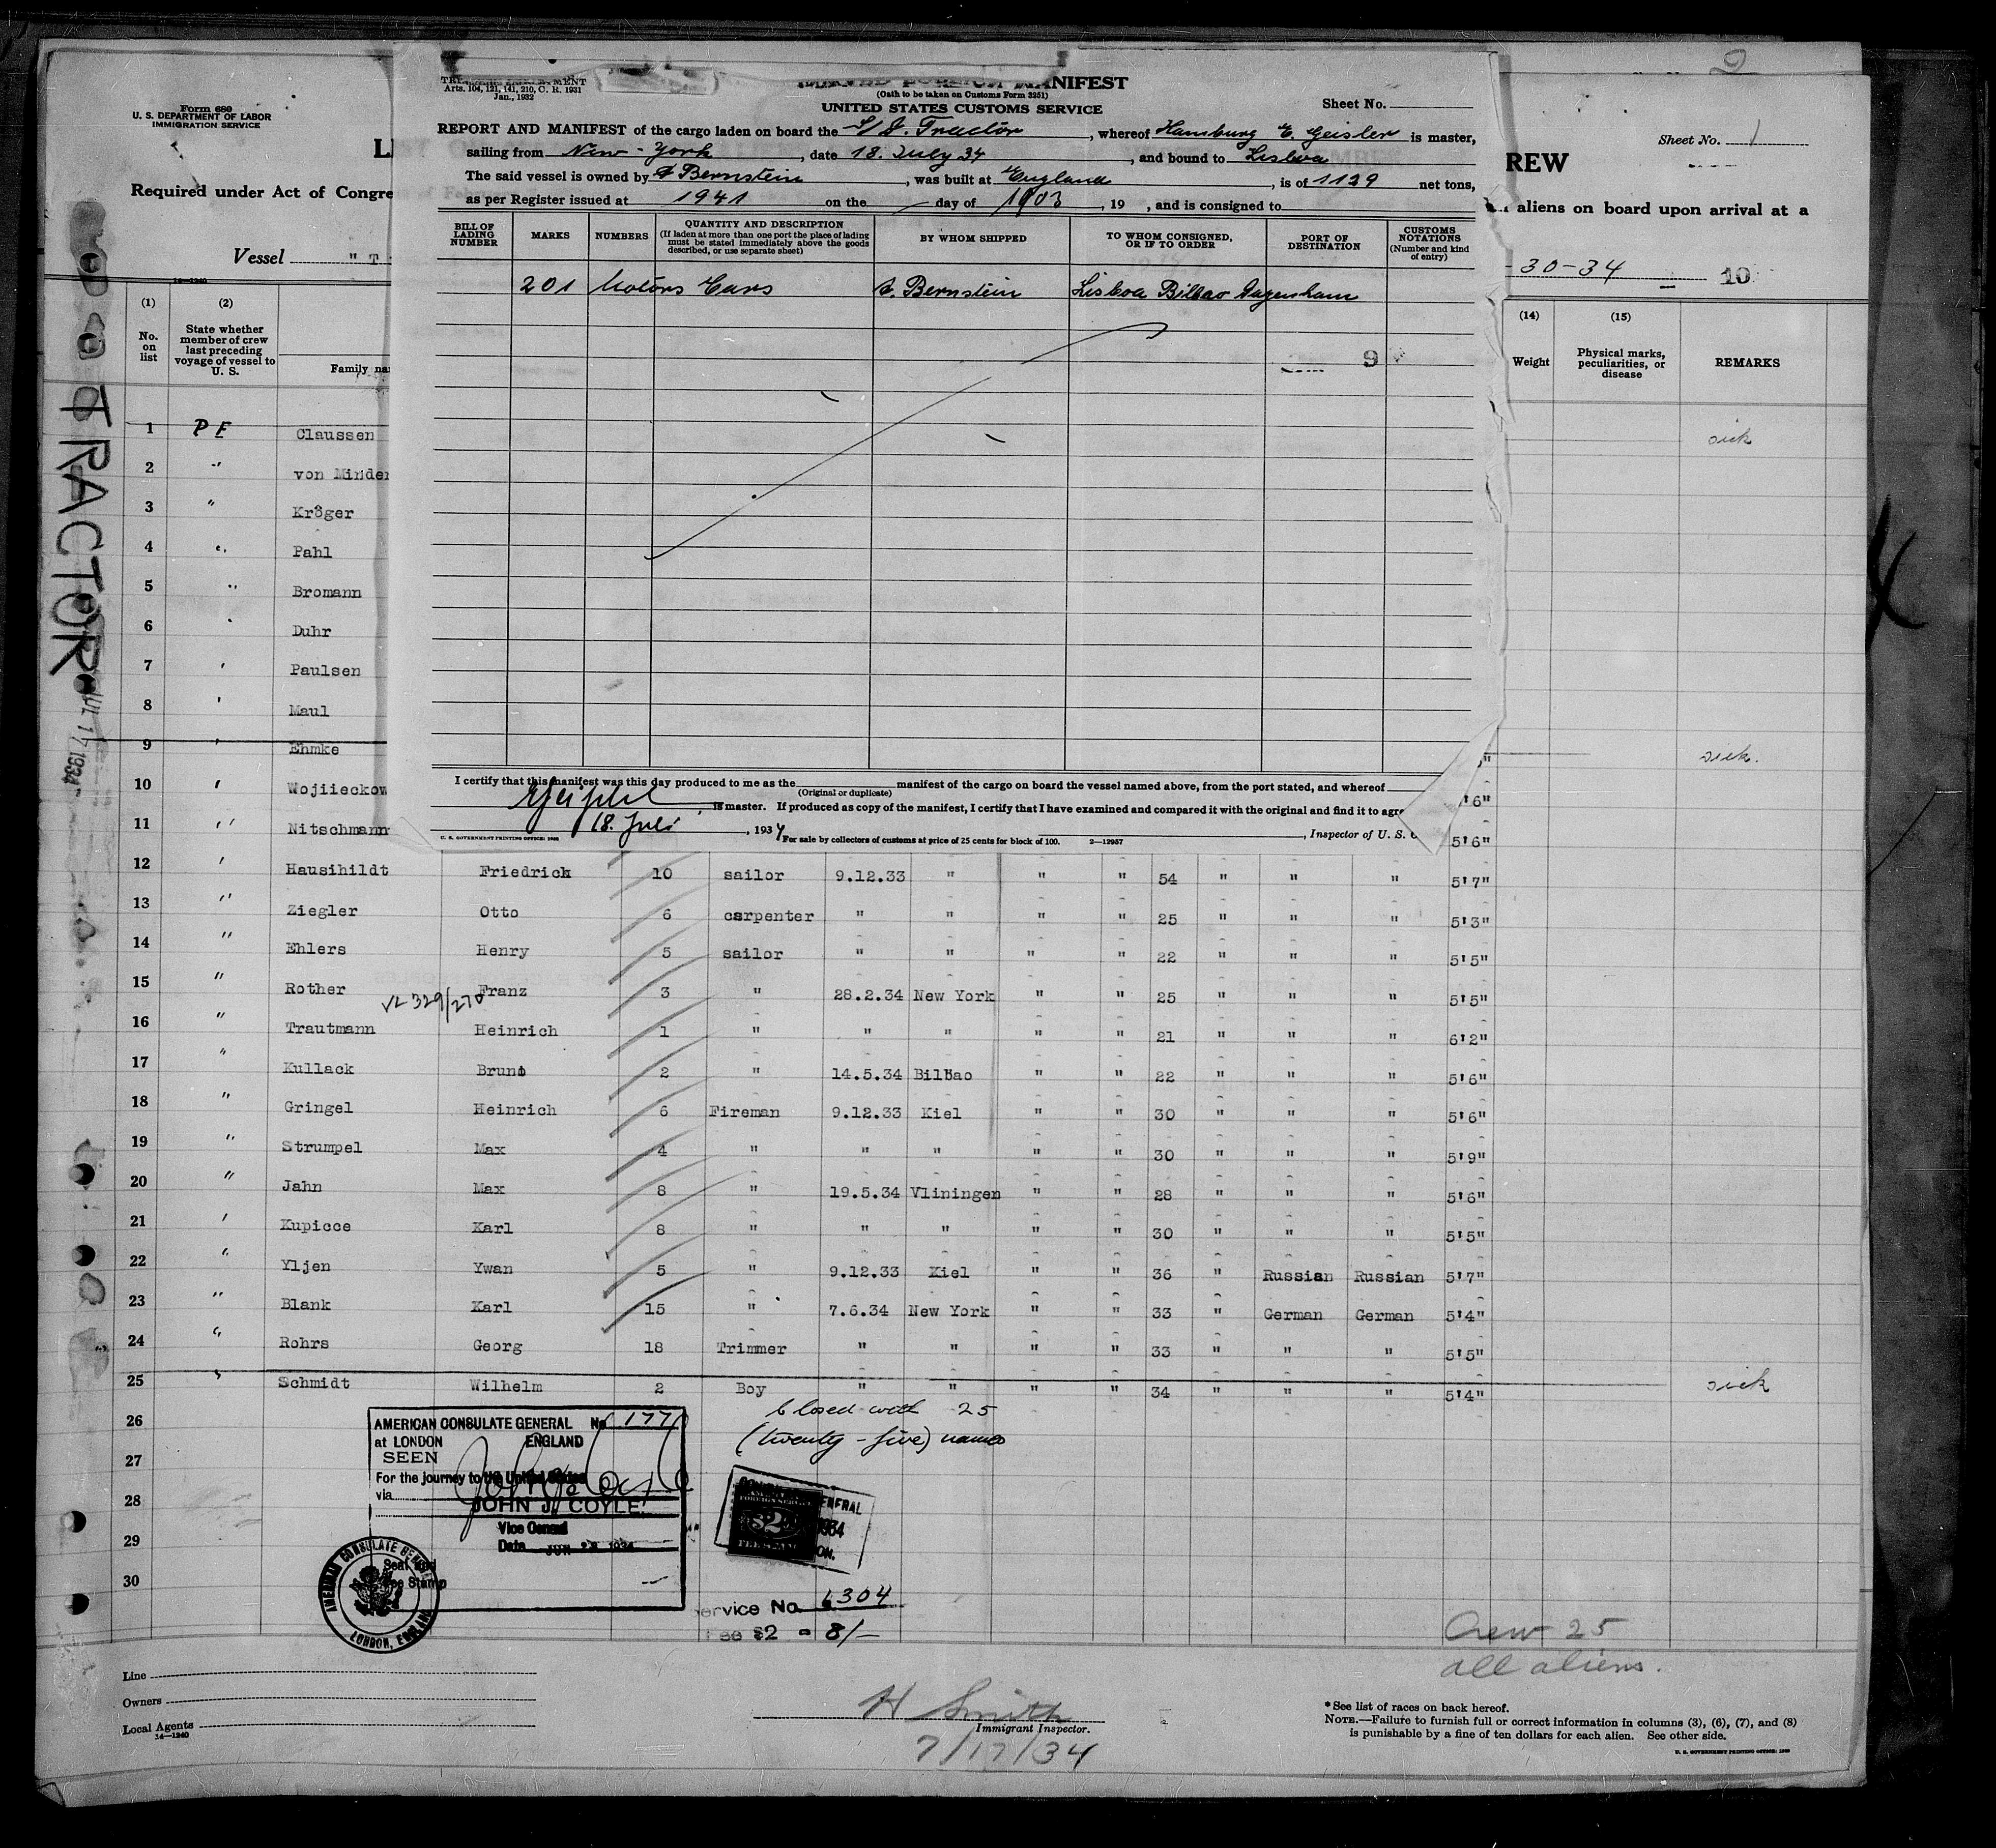 Form 680
U. S. DEPARTMENT OF LABOR
IMMIGRATION SERVICE
Required under Act of Congre
Vessel "T
14—1240
TRACTOR
JUL 17 1934
MANIFEST
Arts. 104, 121, 141, 210, C. R. 1931
Jan., 1932
(Oath to be taken on Customs Form 3251)
UNITED STATES CUSTOMS SERVICE
Sheet No.
REPORT AND MANIFEST of the cargo laden on board the S/S. Tractor, whereof Hamburg E. Geisler is master,
sailing from New-York, date 18. July 34, and bound to Lisboa
The said vessel is owned by A Bernstein, was built at England, is of 1129 net tons,
as per Register issued at 1941 on the day of 1903, 19 , and is consigned to
BILL OF LADING NUMBER MARKS NUMBERS QUANTITY AND DESCRIPTION BY WHOM SHIPPED TO WHOM CONSIGNED, OR IF TO ORDER PORT OF DESTINATION CUSTOMS NOTATIONS
(If laden at more than one port the place of lading must be stated immediately above the goods described, or use separate sheet) (Number and kind of entry)
201 Motors Cars A. Bernstein Lisboa Bilbao Dagenham
9
I certify that this manifest was this day produced to me as the manifest of the cargo on board the vessel named above, from the port stated, and whereof
(Original or duplicate)
is master. If produced as copy of the manifest, I certify that I have examined and compared it with the original and find it to agre
18. Juli, 1934
, Inspector of U. S. C
U. S. GOVERNMENT PRINTING OFFICE: 1932 For sale by collectors of customs at price of 25 cents for block of 100. 2—12957
2
Sheet No. 1
REW
aliens on board upon arrival at a
30-34 19
(1) (2) (14) (15)
No. on list State whether member of crew last preceding voyage of vessel to U. S. Family na Weight Physical marks, peculiarities, or disease REMARKS
1 PE Claussen sick
2 " von Minden
3 " Kröger
4 " Pahl
5 " Bromann
6 " Duhr
7 " Paulsen
8 " Maul
9 " Ehmke sick.
10 " Wojiieckow '6"
11 " Nitschmann 5'6"
12 " Hausihildt Friedrick 10 sailor 9.12.33 " " " 54 " " " 5'7"
13 " Ziegler Otto 6 carpenter " " " " 25 " " " 5'3"
14 " Ehlers Henry 5 sailor " " " " 22 " " " 5'5"
15 " Rother Franz 3 " 28.2.34 New York " " 25 " " " 5'5"
VL 329/270
16 " Trautmann Heinrich 1 " " " " " 21 " " " 6'2"
17 " Kullack Bruno 2 " 14.5.34 Bilbao " " 22 " " " 5'6"
18 " Gringel Heinrich 6 Fireman 9.12.33 Kiel " " 30 " " " 5'6"
19 " Strumpel Max 4 " " " " " 30 " " " 5'9"
20 " Jahn Max 8 " 19.5.34 Vliningen " " 28 " " " 5'6"
21 " Kupicce Karl 8 " " " " " 30 " " " 5'5"
22 " Yljen Ywan 5 " 9.12.33 Kiel " " 36 " Russian Russian 5'7"
23 " Blank Karl 15 " 7.6.34 New York " " 33 " German German 5'4"
24 " Rohrs Georg 18 Trimmer " " " " 33 " " " 5'5"
25 " Schmidt Wilhelm 2 Boy " " " " 34 " " " 5'4" sick
26
27
28
29
30
Closed with 25
(twenty-five) names
AMERICAN CONSULATE GENERAL No. 1771
at LONDON ENGLAND
SEEN
For the journey to the United States
via
JOHN J. COYLE
Vice Consul
Date JUN 1934
Seal and
Fee Stamp
AMERICAN CONSULATE GENERAL
LONDON, ENGLAND
$2
1934
ervice No. 6304
Fee $2 = 8/-
Crew 25
all aliens.
Line
Owners
Local Agents
14—1240
H Smith
Immigrant Inspector.
7/17/34
*See list of races on back hereof.
NOTE.—Failure to furnish full or correct information in columns (3), (6), (7), and (8)
is punishable by a fine of ten dollars for each alien. See other side.
U. S. GOVERNMENT PRINTING OFFICE: 1933